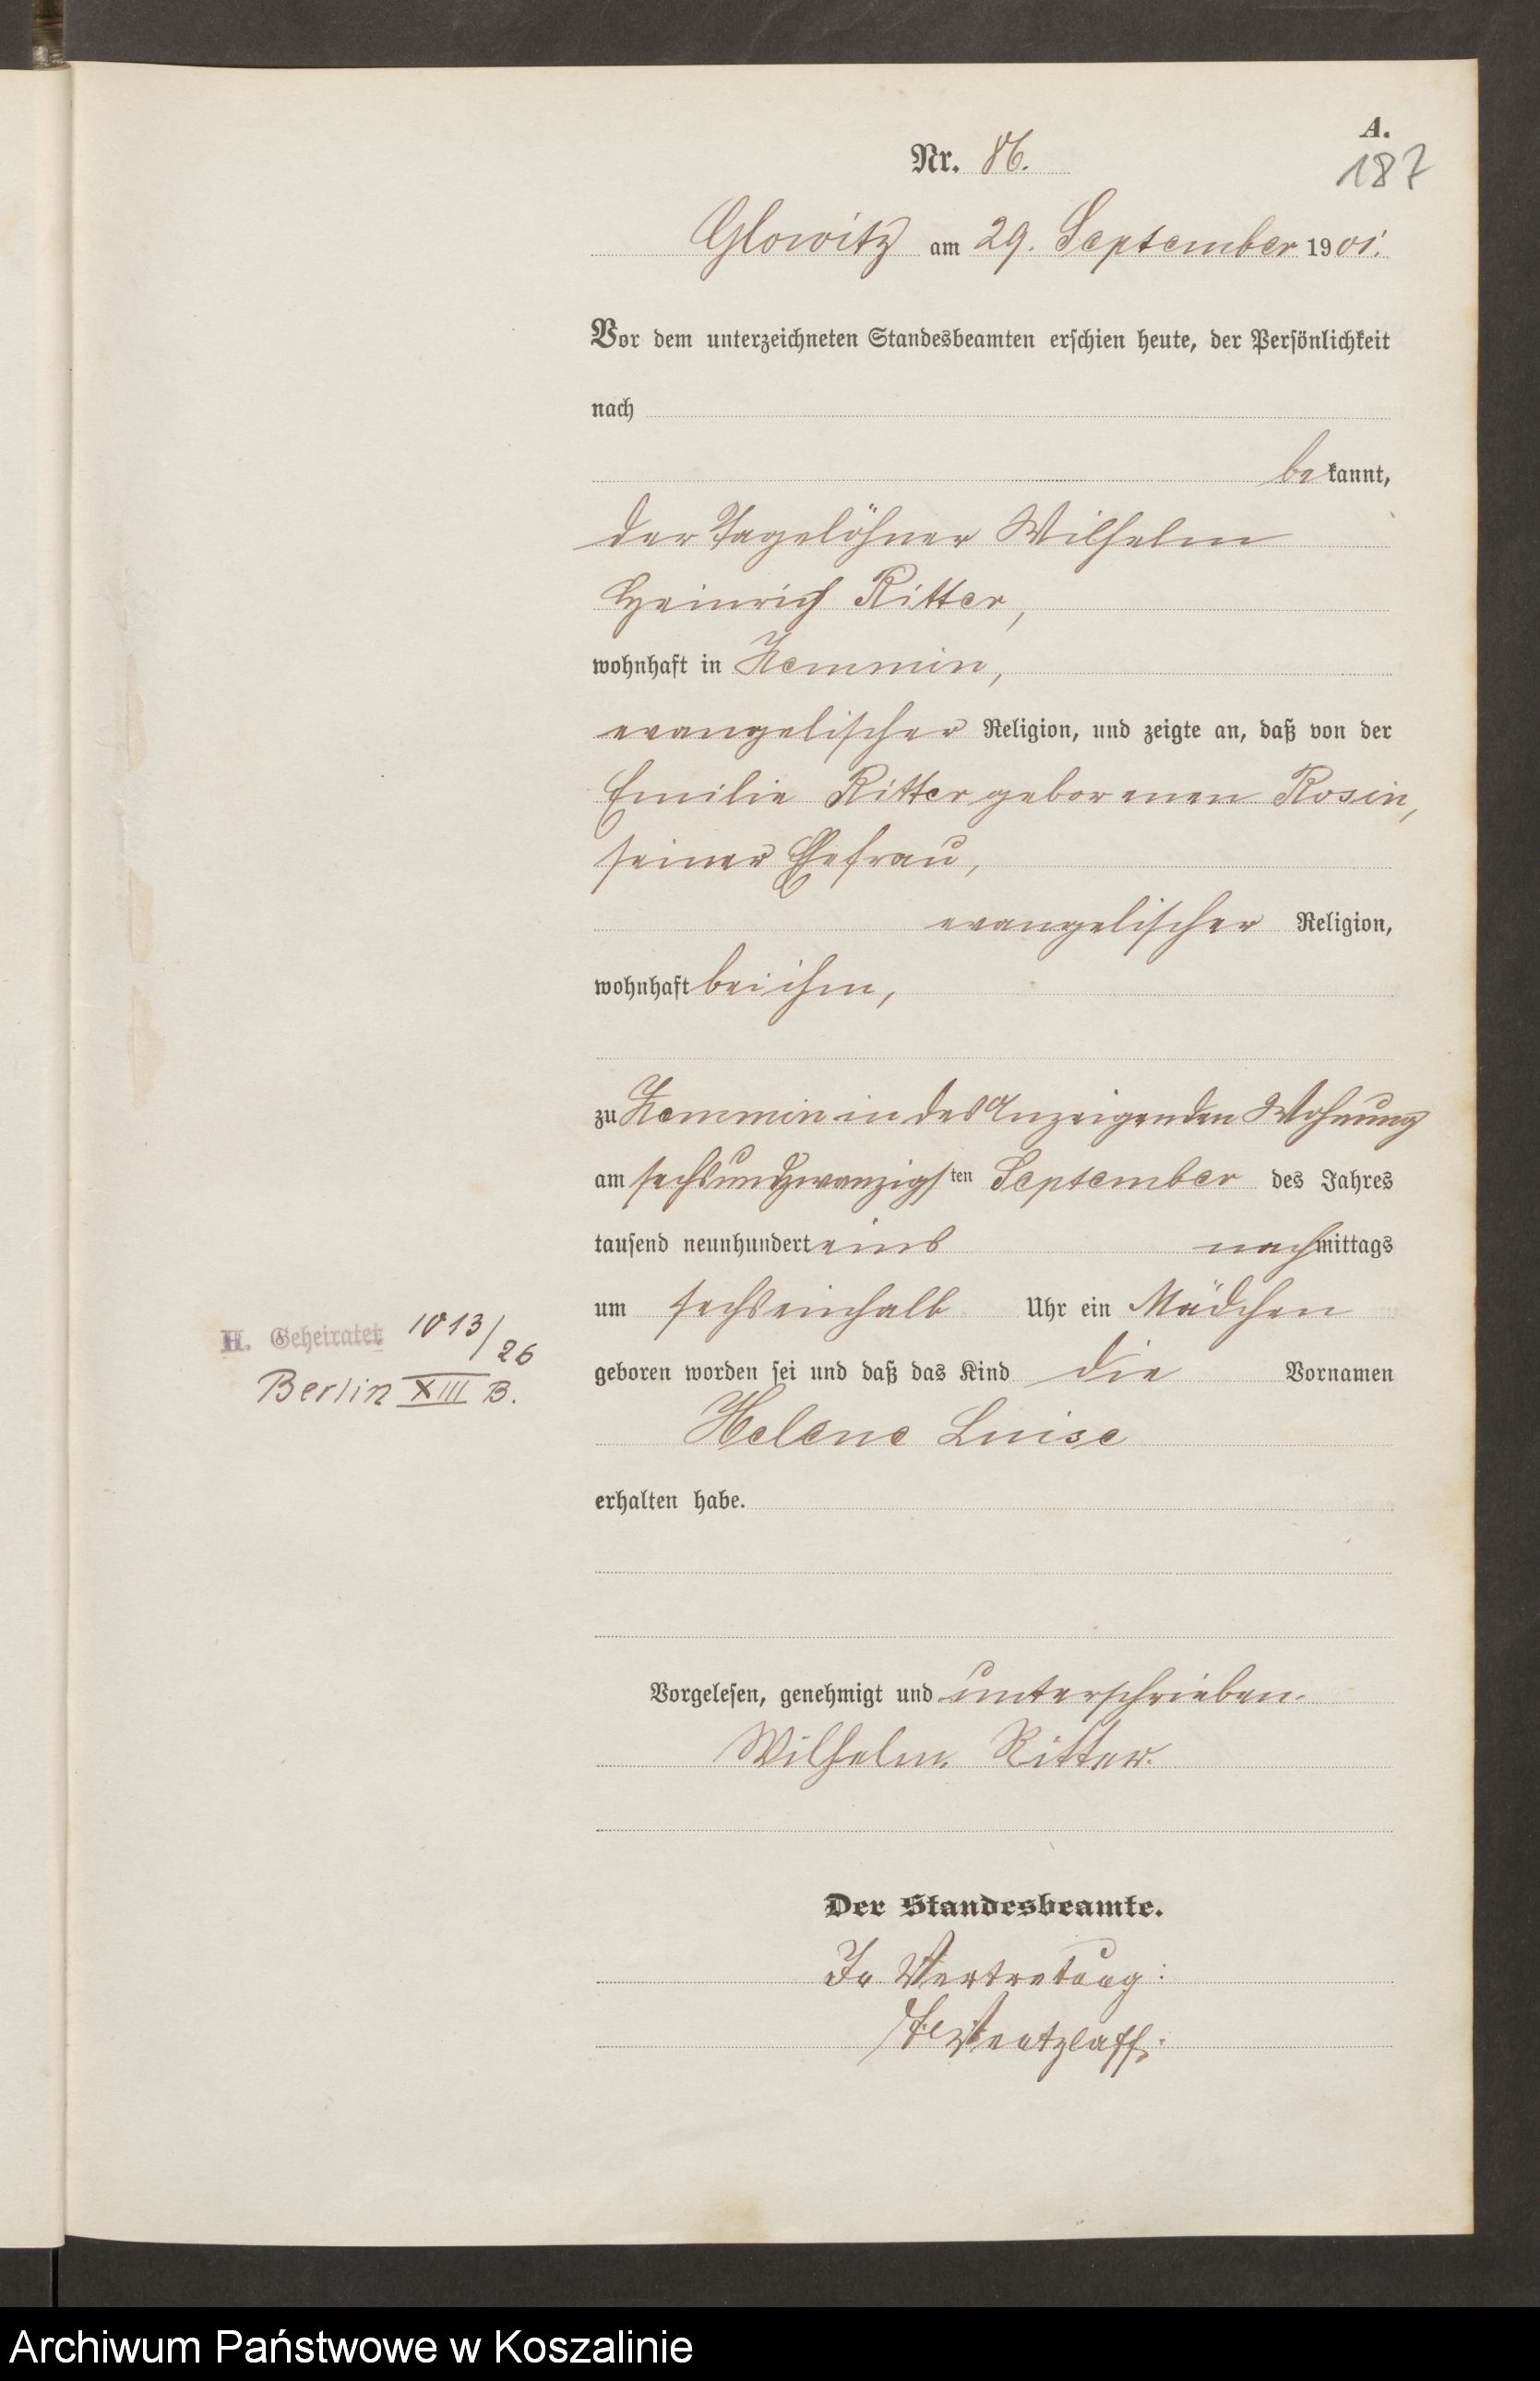 A.
Nr. 86.
187
Glowitz am 29. September 1901.
Vor dem unterzeichneten Standesbeamten erschien heute, der Persönlichkeit
nach
bekannt,
der Tagelöhner Wilhelm
Heinrich Ritter,
wohnhaft in Zemmin,
evangelischer Religion, und zeigte an, daß von der
Emilie Ritter geborenen Rosin,
seiner Ehefrau,
evangelischer Religion,
wohnhaft bei ihm,
zu Zemmin in des Anzeigenden Wohnung
am sechsundzwanzigsten September des Jahres
tausend neunhundert eins nachmittags
um sechseinhalb Uhr ein Mädchen
geboren worden sei und daß das Kind die Vornamen
Helene Luise
erhalten habe.
H. Geheiratet 1013/26
Berlin XIII B.
Vorgelesen, genehmigt und unterschrieben.
Wilhelm Ritter.
Der Standesbeamte.
In Vertretung:
Wentzlaff.
Archiwum Państwowe w Koszalinie